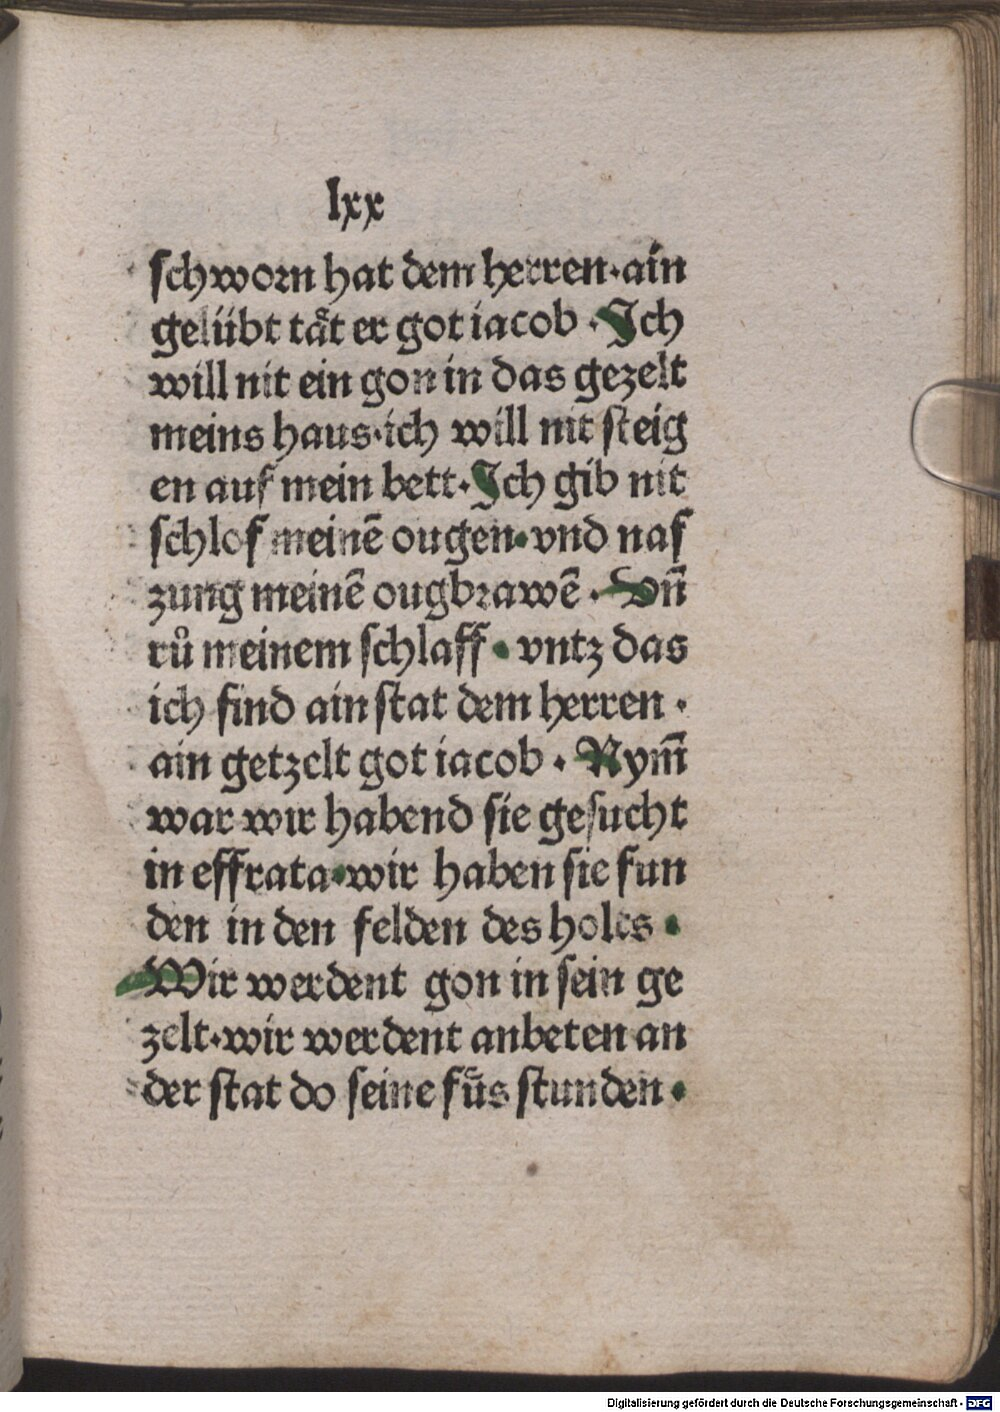 lxx
ſchworn hat dem herren·ain
gelübt tåt er got iacob·Jch
will nit ein gon in das gezelt
meins haus·ich will nit ſteig
en auf mein bett·Jch gib nit
ſchlof meinē ougen·vnd naf
zung meinē ougbꝛawē·Vn̄
rů meinem ſchlaff·vntz das
ich find ain ſtat dem herren·
ain getzelt got iacob·Nym̄
war wir habend ſie geſucht
in effrata·wir haben ſie fun
den in den felden des holcs·
Wir werdent gon in ſein ge
zelt·wir werdent anbeten an
der ſtat do ſeine fu̇s ſtunden·
Digitalisierung gefördert durch die Deutsche Forschungsgemeinschaft - DFG